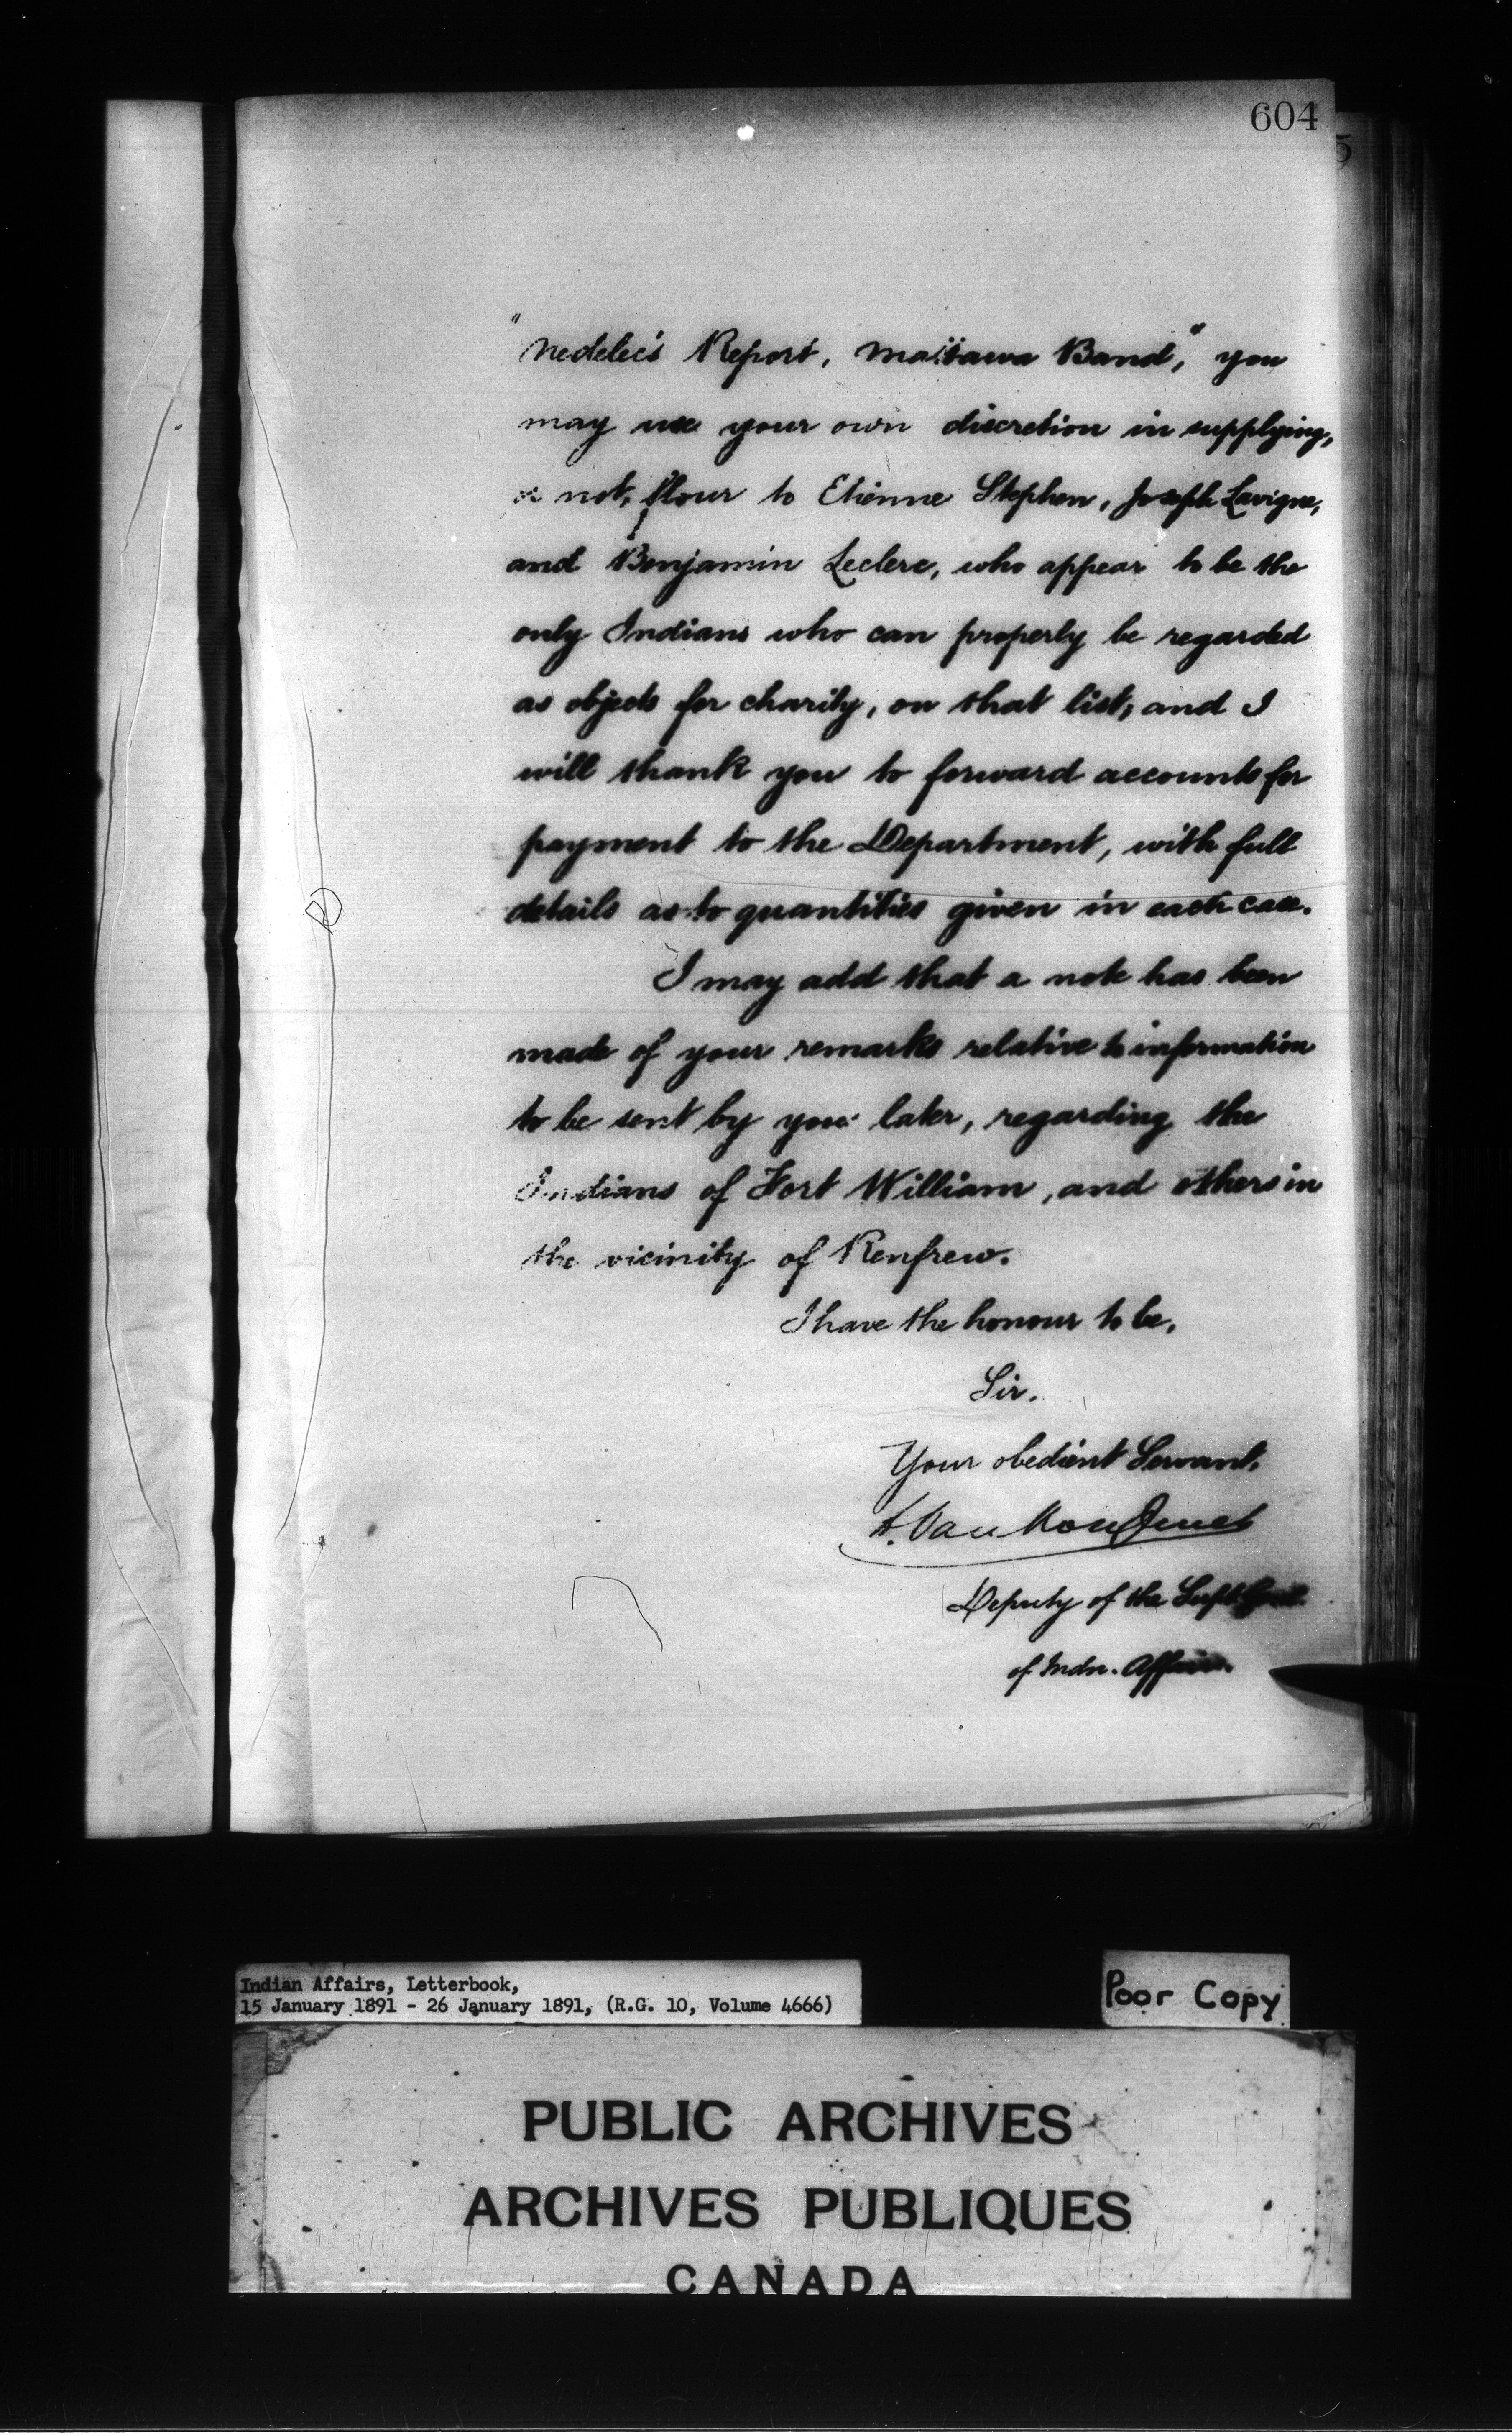 604
"Nedelec's Report, Mattawa Band", you
may use your own discretion in supplying,
or not, flour to Etienne Stephen, Joseph Lavigne,
and Benjamin Leclerc, who appear to be the
only Indians who can properly be regarded
as objects for charity, on that list; and I
will thank you to forward accounts for
payment to the Department, with full
details as to quantities given in each case.
I may add that a note has been
made of your remarks relative to information
to be sent by you later, regarding the
Indians of Fort William, and others in
the vicinity of Renfrew.
I have the honour to be,
Sir.
Your obedient Servant.
L. VanKoughnet
Deputy of the Supt. Genl.
of Indn. Affairs.
Indian Affairs, Letterbook,
15 January 1891 - 26 January 1891, (R.G. 10, Volume 4666)
Poor Copy
PUBLIC ARCHIVES
ARCHIVES PUBLIQUES
CANADA